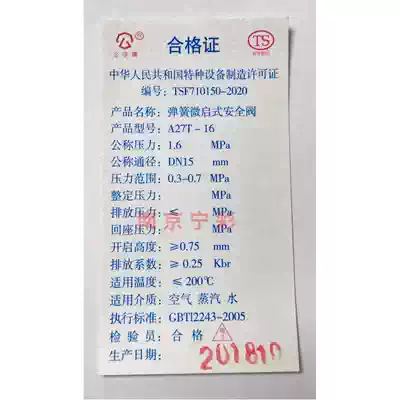 合格证
TS
中华人民共和国特种设备制造许可证
编号: TSF710150-2020
产品名称: 弹簧微启式安全阀
产品型号: A27T-16
公称压力: 1.6 MPa
公称通径: DN15 mm
压力范围: 0.3-0.7 MPa
整定压力: MPa
排放压力: ≤ MPa
南京宁彩
回座压力: MPa
开启高度: ≥0.75 mm
排放系数: ≥0.25 Kbr
适用温度: ≤200℃
适用介质: 空气 蒸汽 水
执行标准: GBT12243-2005
检验员: 合格
生产日期: 201810